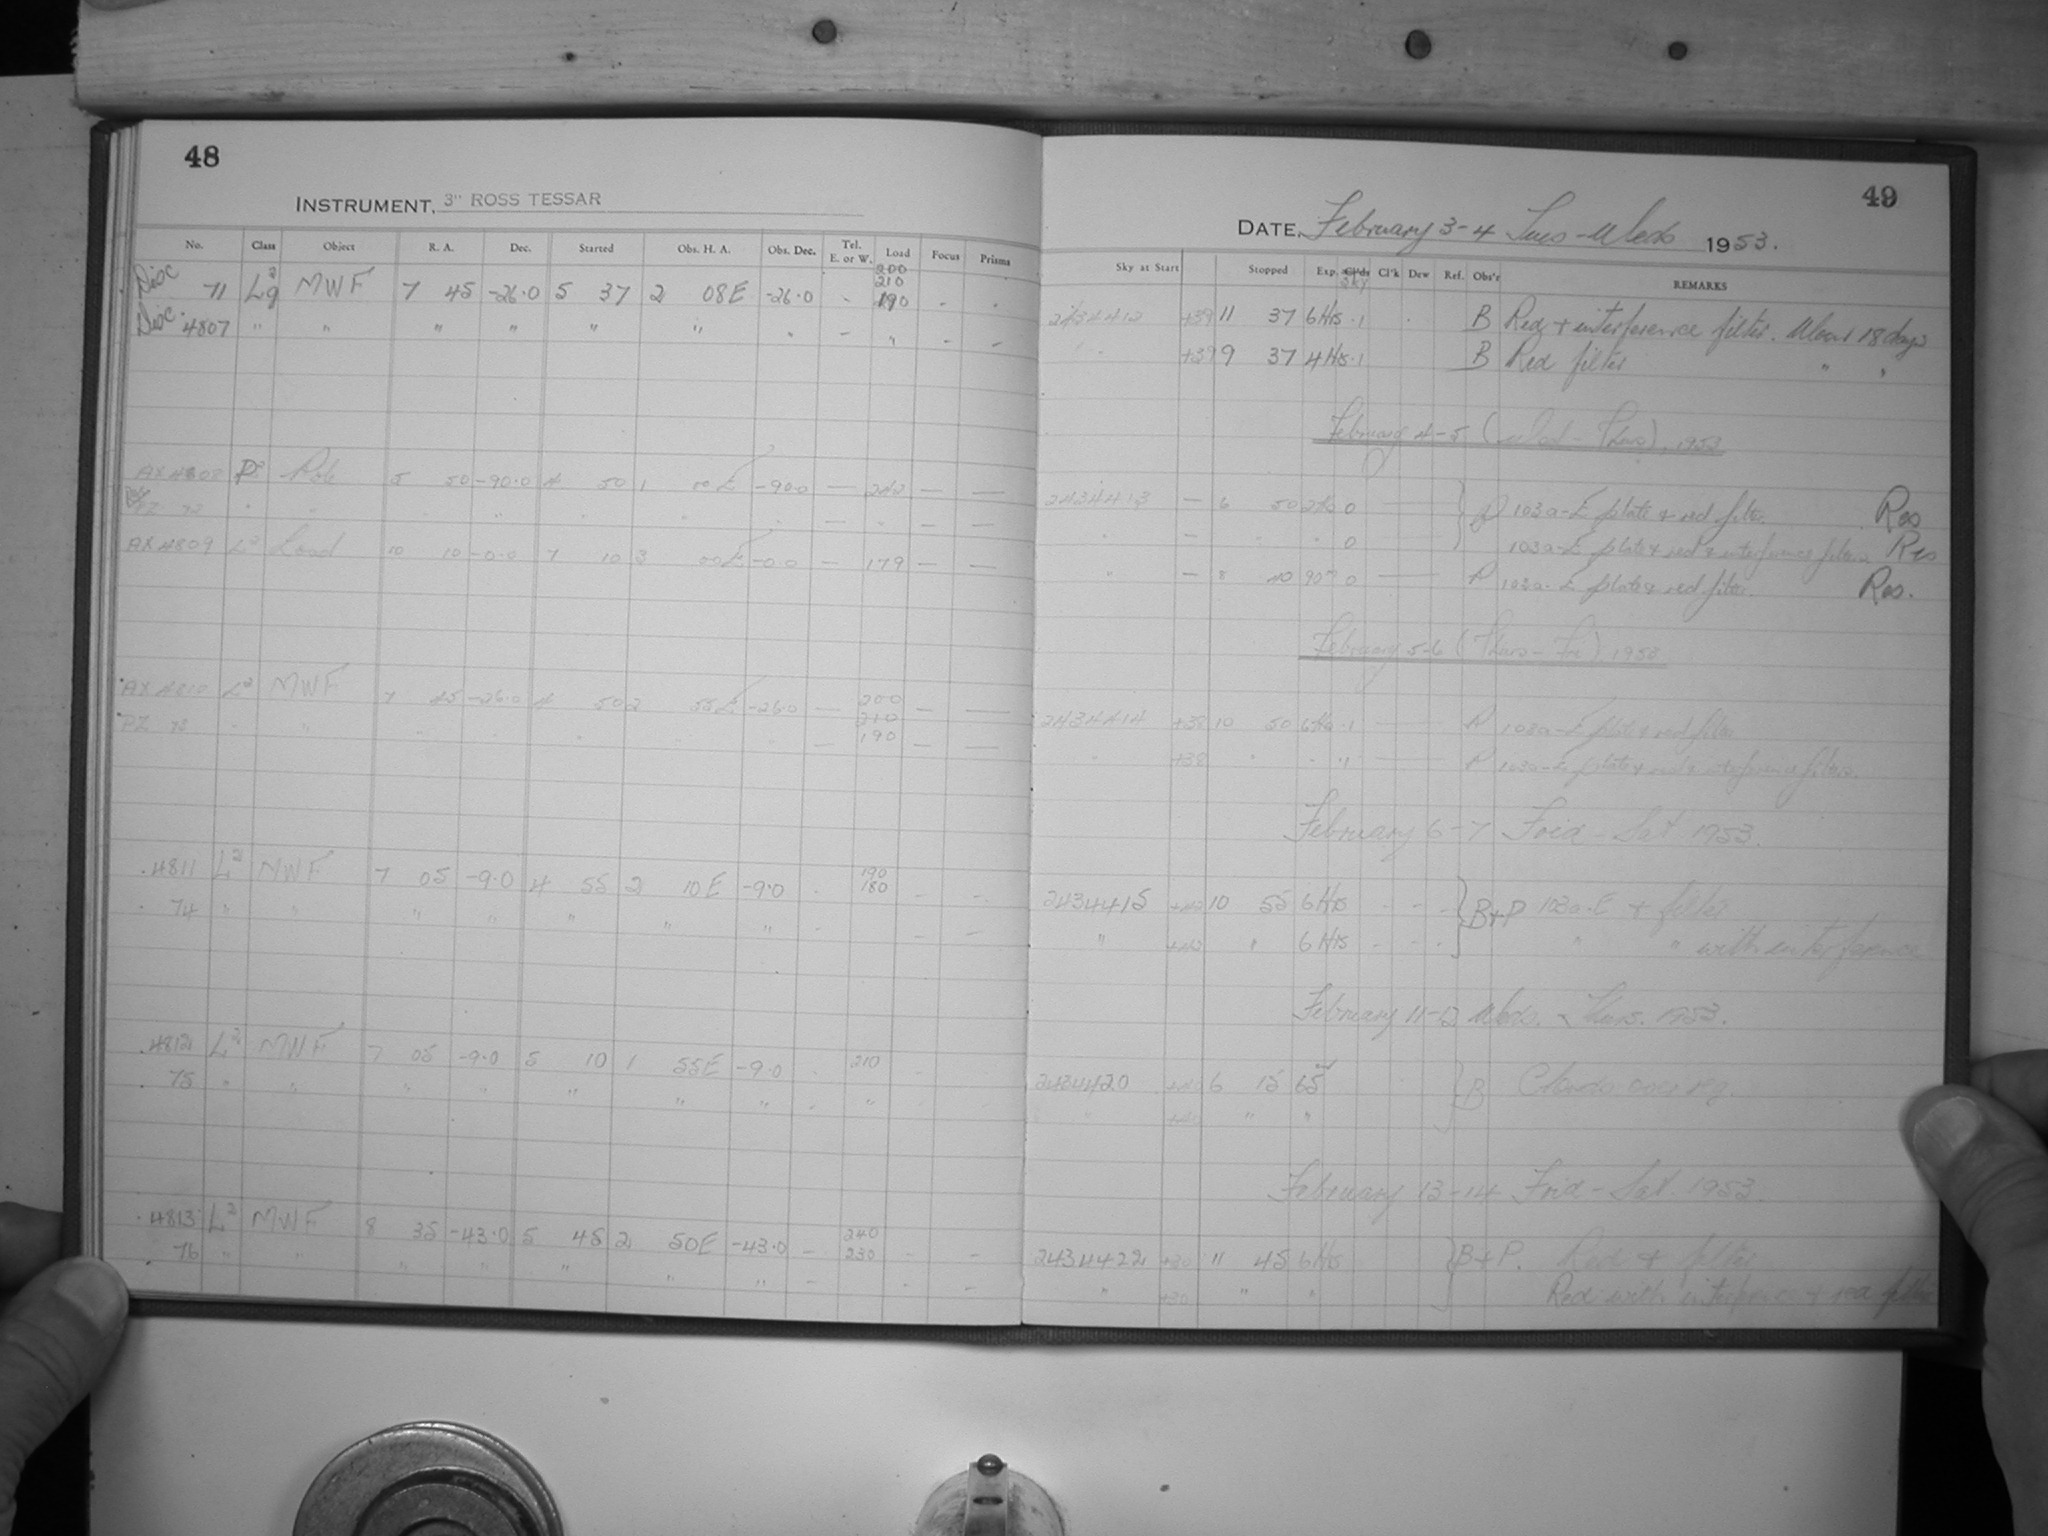 48
INSTRUMENT, 3" ROSS TESSAR
No. Class Object R. A. Dec. Started Obs. H. A. Obs. Dec. Tel. E. or W. Load Focus Prisms
Disc 71 L9 MWF 7 45 -26.0 5 37 2 08E -26.0 - 200 210 190 - -
Disc. 4807 " " " " " " - " - -
AX 4808 P2 Pole 5 50 -90.0 4 50 1 00E -90.0 — 242 — —
PZ 72 " " " " " " — " — —
AX 4809 L2 10 10 -0.0 7 10 3 00E -0.0 — 179 — —
AX 4810 L2 MWF 7 45 -26.0 4 50 2 55E -26.0 — 200 210 190 — —
PZ 73 " " " " " " — — —
4811 L2 MWF 7 05 -9.0 4 55 2 10E -9.0 - 190 180 - -
74 " " " " " " " - - -
4812 L2 MWF 7 05 -9.0 5 10 1 55E -9.0 - 210 -
75 " " " " " " " - "
4813 L2 MWF 8 35 -43.0 5 45 2 50E -43.0 - 240 230 - -
76 " " " " " " " - - -
49
DATE, February 3-4 Tues-Weds 1953.
Sky at Start Stopped Exp. Cl'ds Sky Cl'k Dew Ref. Obs'r REMARKS
2434412 +39 11 37 6Hrs .1 B Red + interference filter. About 18 days
" +39 9 37 4Hrs .1 B Red filter " "
February 4-5 (Wed-Thurs), 1953
2434413 — 6 50 2Hrs 0 P 103a-E plate & red filter. Res
" — " " 0 103a-E plate & red & interference filters Res
" — 8 40 90m 0 P 103a-E plate & red filter. Res.
February 5-6 (Thurs-Fri), 1953
2434414 +38 10 50 6Hrs .1 P 103a-E plate & red filter
" +38 " " " P 103a-E plate & red & interference filters.
February 6-7 Frid-Sat. 1953.
2434415 +42 10 55 6Hrs - - - B+P 103a-E + filter
" +42 " 6Hrs - - - " " with interference
February 11-12 Weds.-Thurs. 1953.
2434420 +40 6 15 65m B Clouds
" +40 " "
February 13-14 Frid-Sat. 1953.
2434422 +30 11 45 6Hrs B+P. Red + filter
" +30 " " Red with interference & red filter